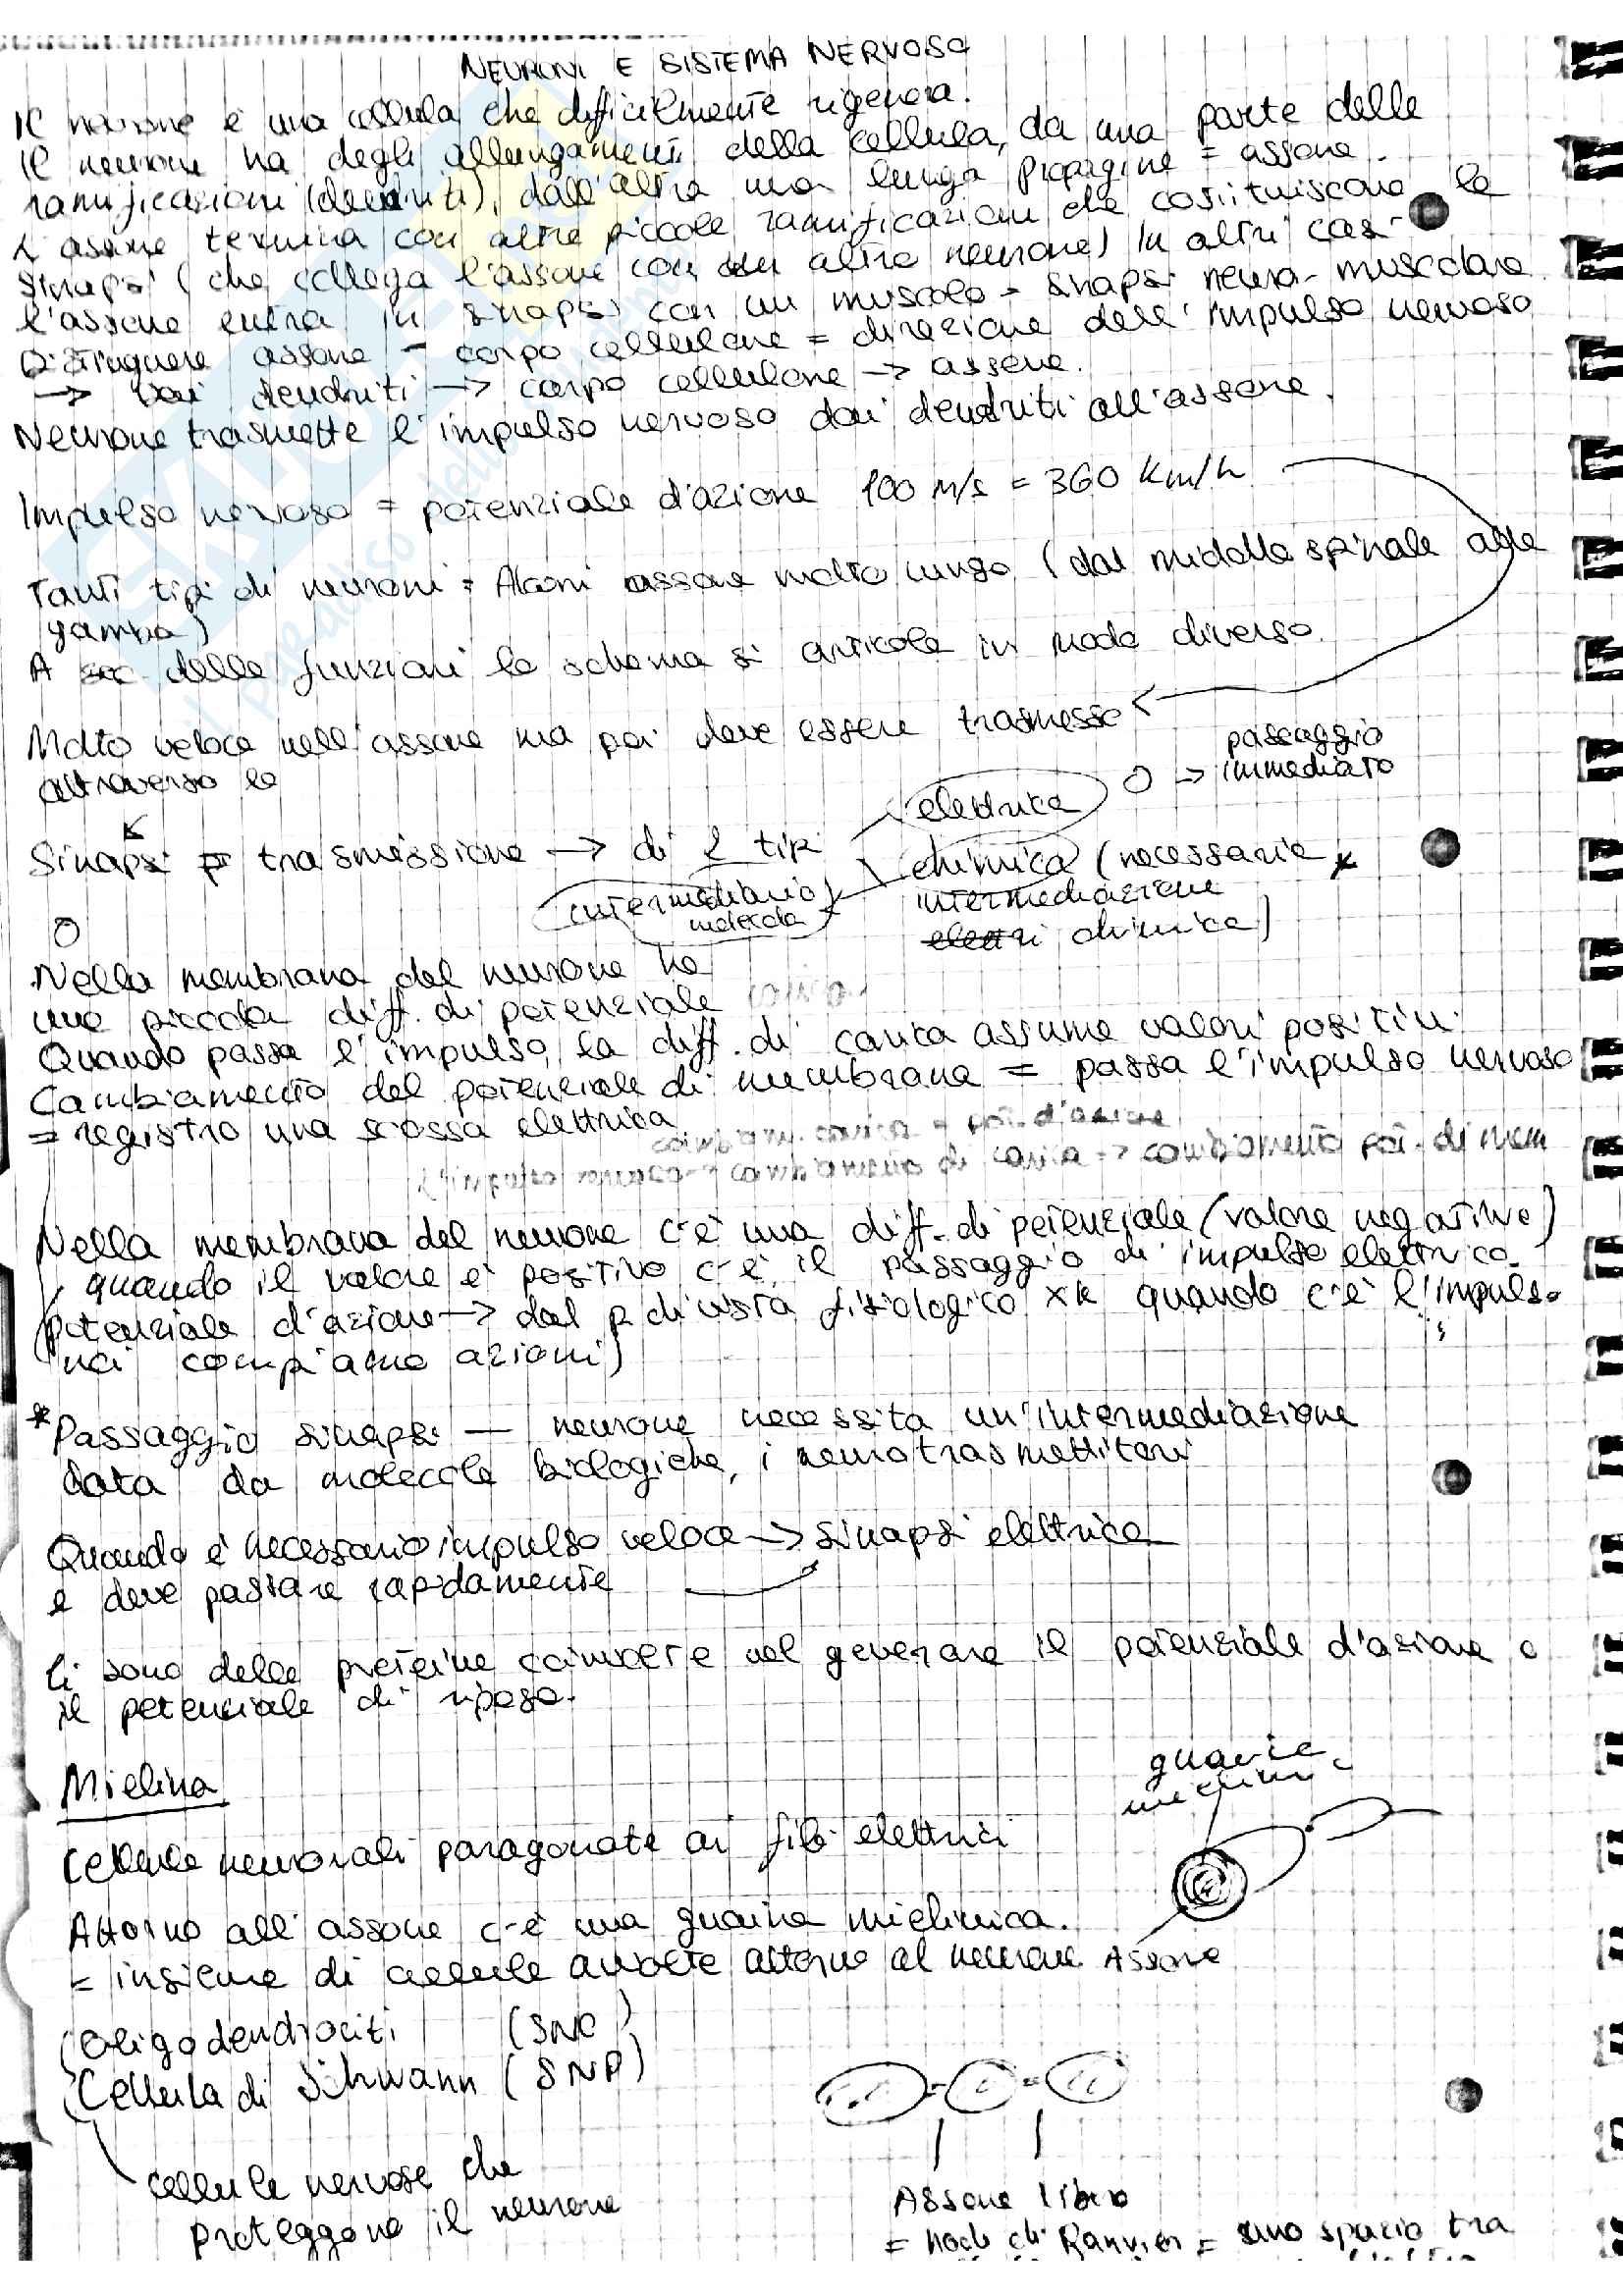 NEURONI E SISTEMA NERVOSO
Il neurone è una cellula che difficilmente rigenera.
Il neurone ha degli allungamenti della cellula, da una parte delle
ramificazioni (dendriti), dall'altra una lunga propagine = assone.
L'assone termina con altre piccole ramificazioni che costituiscono le
sinapsi (che collega l'assone con un altro neurone) In altri casi
l'assone entra in sinapsi con un muscolo = sinapsi neuro-muscolare
Distinguere assone - corpo cellulare = direzione dell'impulso nervoso
→ dai dendriti → corpo cellulare → assone.
Neurone trasmette l'impulso nervoso dai dendriti all'assone.
Impulso nervoso = potenziale d'azione 100 m/s = 360 km/h
Tanti tipi di neuroni = Alcuni assone molto lungo (dal midollo spinale alle
gambe)
A delle funzioni lo schema si articola in modo diverso.
Molto veloce nell'assone ma poi deve essere trasmesso
attraverso le
passaggio
O → immediato
elettrica
Sinapsi trasmissione → di 2 tipi
chimica (necessaria *
intermediazione
chimica)
intermediario
molecola
O
Nella membrana del neurone ho
una piccola diff. di potenziale
Quando passa l'impulso, la diff. di carica assume valori positivi.
Cambiamento del potenziale di membrana = passa l'impulso nervoso
= registro una scossa elettrica
= pot. d'azione
L'impulso nervoso → cambiamento di carica → cambiamento pot. di mem
Nella membrana del neurone c'è una diff. di potenziale (valore negativo)
quando il valore è positivo c'è il passaggio di impulso elettrico.
potenziale d'azione → dal p. di vista fisiologico xk quando c'è l'impulso
noi compiamo azioni)
*Passaggio sinapsi — neurone necessita un'intermediazione
data da molecole biologiche, i neurotrasmettitori
Quando è necessario impulso veloce → sinapsi elettrica
e deve passare rapidamente
Ci sono delle proteine coinvolte nel generare il potenziale d'azione o
il potenziale di riposo.
Mielina
guaina
mielinica
Cellule neuronali paragonate ai fili elettrici
Attorno all'assone c'è una guaina mielinica.
= insieme di cellule avvolte attorno al neurone
Assone
(Oligodendrociti (SNC)
(Cellula di Schwann (SNP)
cellule nervose che
proteggono il neurone
Assone libero
= nodi di Ranvier = sono spazio tra